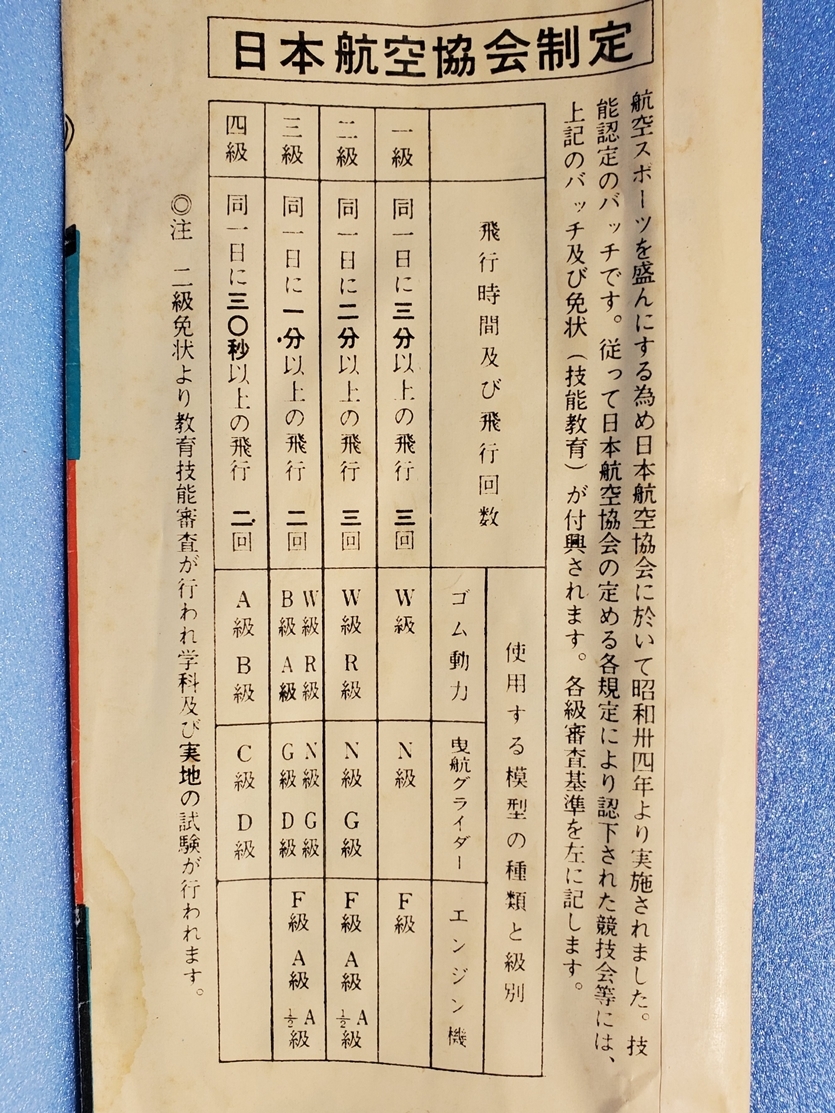 日本航空協会制定
航空スポーツを盛んにする為め日本航空協会に於いて昭和卅四年より実施されました。技
能認定のバッチです。従って日本航空協会の定める各規定により認下された競技会等には、
上記のバッチ及び免状(技能教育)が付興されます。各級審査基準を左に記します。
飛行時間及び飛行回数
使用する模型の種類と級別
ゴム動力
曳航グライダー
エンジン機
一級
同一日に三分以上の飛行 三回
W級
N級
F級
二級
同一日に二分以上の飛行 三回
W級 R級
N級 G級
F級 A級 ½A級
三級
同一日に一分以上の飛行 二回
W級 R級
B級 A級
N級 G級
G級 D級
F級 A級 ½A級
四級
同一日に三〇秒以上の飛行 二回
A級 B級
C級 D級
◎注 二級免状より教育技能審査が行われ学科及び実地の試験が行われます。